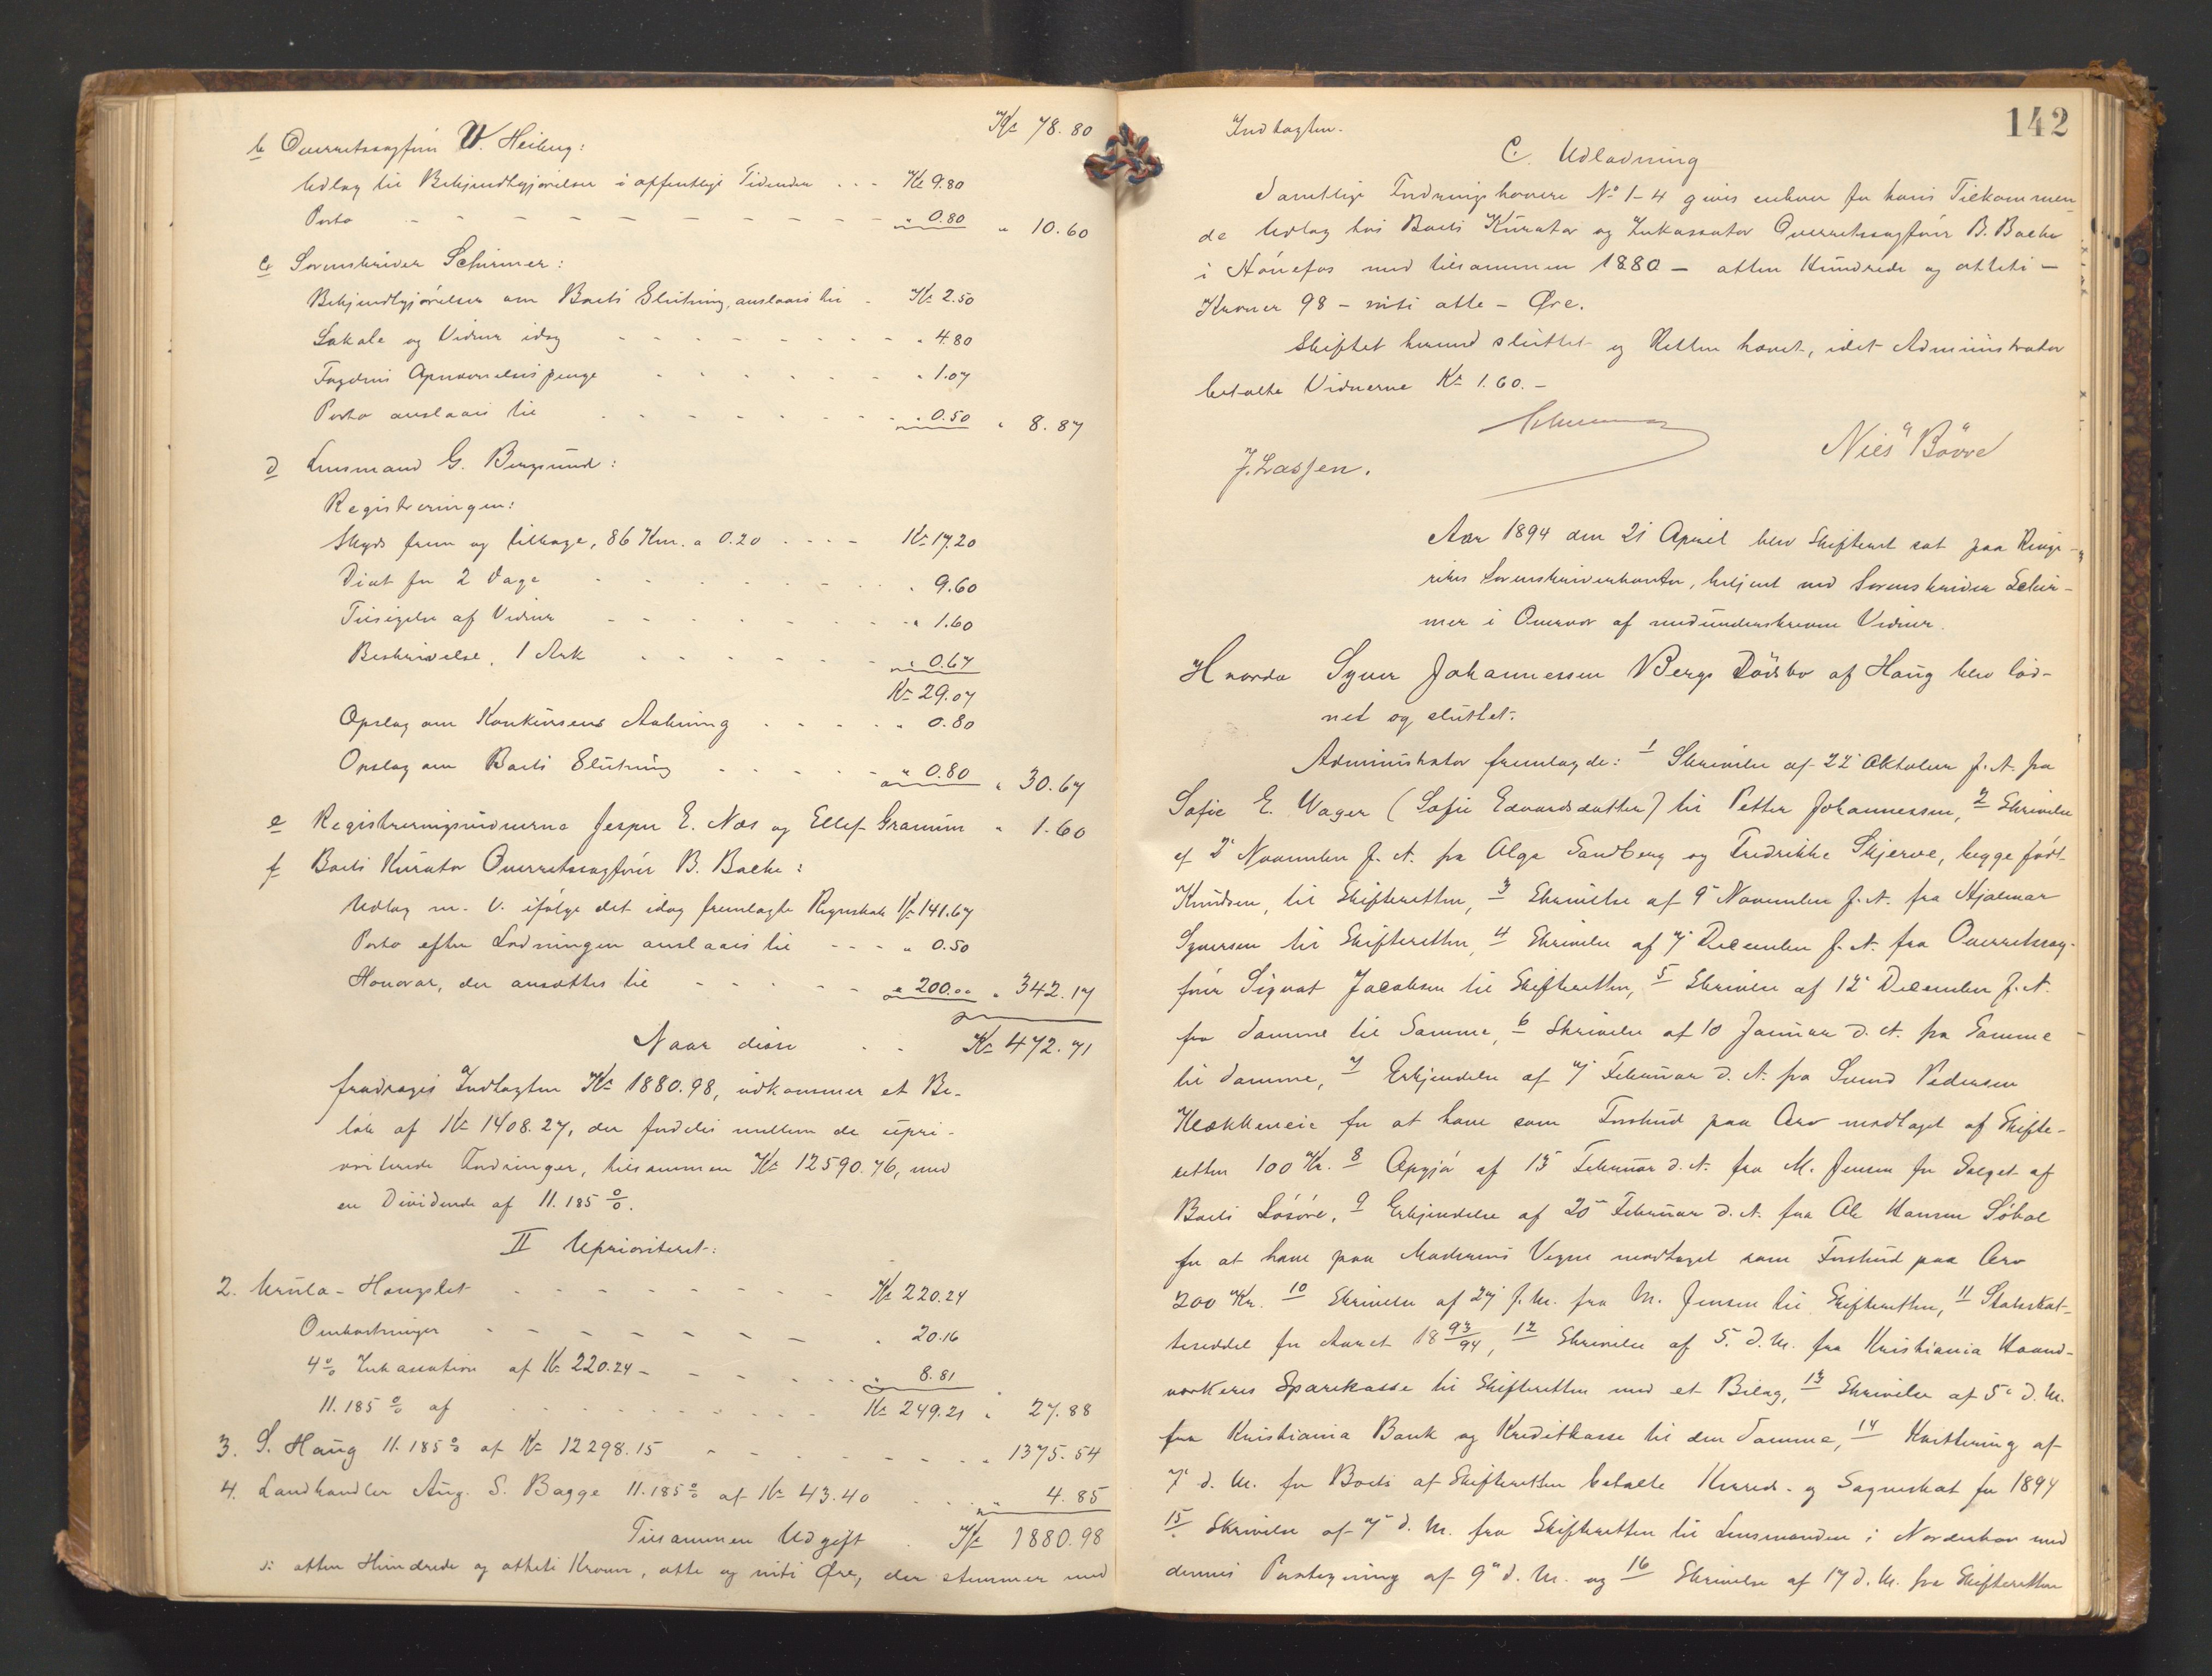 Kr. 78.80
b Overretssagfører W. Heiberg:
Udlæg til Bekjendtgjørelser i offentlige Tidender . . - Kr. 9.80
Porto - - - - - - - - - " 0.80 " 10.60
c Sorenskriver Schirmer:
Bekjendtgjørelser om Boets Slutning, anslaaes til - Kr. 2.50
Lokale og Vidner idag - - - - - - - " 4.80
Fogdens Opnævnelsespenge - - - - - " 1.07
Porto anslaaes til - - - - - - - " 0.50 " 8.87
d Lensmand G. Bergsund:
Registreringen:
Skyds frem og tilbage, 86 Km. a 0.20 . . . - Kr. 17.20
Diæt for 2 Dage - - - - - - " 9.60
Tilsigelse af Vidner - - - - - - " 1.60
Beskrivelse, 1 Ark - - - - - - " 0.67
Kr. 29.07
Opslag om Konkursens Aabning - - - - " 0.80
Opslag om Boets Slutning - - - - - " 0.80 " 30.67
e Registreringsvidnerne Jesper E. Næs og Ellef Gramum " 1.60
f Boets Kurator Overretssagfører B. Bache:
Udlæg m. V. ifølge det idag fremlagte Regnskab Kr. 141.67
Porto efter Lodningen anslaaes til - - - " 0.50
Honorar, der ansættes til - - - - - " 200.00 " 342.17
Naar disse . . Kr. 472.71
fradrages Indtægten Kr. 1880.98, udkommer et Be-
løb af Kr. 1408.27, der fordeles mellem de upri-
oriterede Fordringer, tilsammen Kr. 12590.76, med
en Dividende af 11.185 %.
II Uprioriteret:
2. Ursula - Haugslet - - - - - - - Kr. 220.24
Omkostninger - - - - - - - " 20.16
4 % Inkassation af Kr. 220.24 - - - - - " 8.81
11.185 % af - - - - - - Kr. 249.21 " 27.88
3. S. Haug 11.185 % af Kr. 12298.15 - - - - - - " 1375.54
4. Landhandler Aug. S. Bagge 11.185 % af Kr. 43.40 . . . " 4.85
Tilsammen Udgift . Kr. 1880.98
s: atten Hundrede og otteti Kroner, otte og niti Øre, der stemmer med
142
Indtægten.
C. Udlodning
Samtlige Fordringshavere No 1-4 gives enhver for hans Tilkommen-
de Udlæg hos Boets Kurator og Inkassator Overretssagfører B. Bache
i Hønefos med tilsammen 1880 - atten Hundrede og otteti -
Kroner 98 - niti otte - Øre.
Skiftet hermed sluttet og Retten hævet, idet Administrator
betalte Vidnerne Kr. 1.60. -
Schirmer
J. Lassen. Nils Børre
Aar 1894 den 21 April blev Skifteret sat paa Ringe-
rikes Sorenskriverkontor, betjent ved Sorenskriver Schir-
mer i Overvær af medunderskrevne Vidner.
Hvorda Syver Johannessen Bergs Dødsbo af Haug blev lod-
net og sluttet.
Administrator fremlagde: 1 Skrivelse af 22 Oktober f. A. fra
Sofie E. Wager (Sofie Edvardsdatter) til Petter Johannessen, 2 Skrivelse
af 2 November f. A. fra Olga Sandberg og Fredrikke Skjerve, begge født
Knudsen, til Skifteretten, 3 Skrivelse af 9 November f. A. fra Hjalmar
Syversen til Skifteretten, 4 Skrivelse af 7 December f. A. fra Overretssag-
fører Sigvat Jacobsen til Skifteretten, 5 Skrivelse af 12 December f. A.
fra Samme til Samme, 6 Skrivelse af 10 Januar d. A. fra Samme
til Samme, 7 Erkjendelse af 7 Februar d. A. fra Svend Pedersen
Klækkeneie for at have som Forskud paa Arv modtaget af Skifte-
retten 100 Kr. 8 Opgjør af 15 Februar d. A. fra M. Jensen for Salget af
Boets Løsøre, 9 Erkjendelse af 20 Februar d. A. fra Ole Hansen Søhol
for at have paa Moderens Vegne modtaget som Forskud paa Arv
200 Kr. 10 Skrivelse af 27 f. M. fra M. Jensen til Skifteretten, 11 Statsskat-
teseddel for Aaret 1893/94, 12 Skrivelse af 5 d. M. fra Kristiania Haand-
værkeres Sparekasse til Skifteretten med et Bilag, 13 Skrivelse af 5 d. M.
fra Kristiania Bank og Kreditkasse til den Samme, 14 Kvittering af
7 d. M. for Boets af Skifteretten betalte Herreds- og Sogneskat for 1894
15 Skrivelse af 7 d. M. fra Skifteretten til Lensmanden i Norderhov med
dennes Paategning af 9 d. M. og 16 Skrivelse af 17 d. M. fra Skifteretten